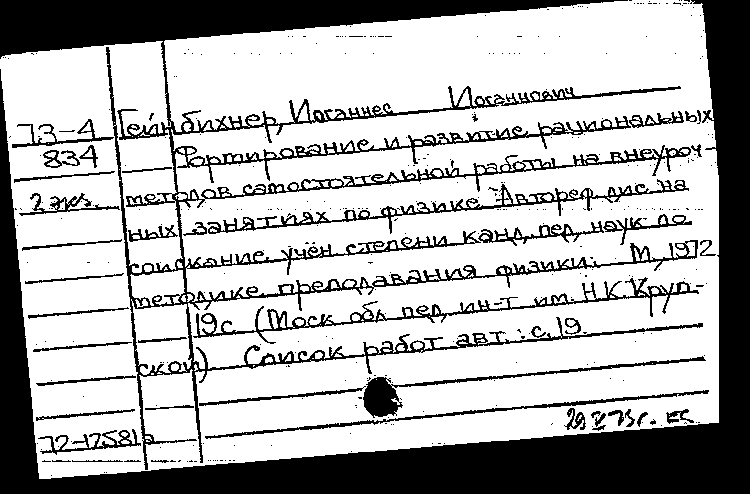 73-4 Гейнбихнер, Иоганнес Иоганнович
834 Формирование и развитие рациональных
2 экз. методов самостоятельной работы на внеуроч-
ных занятиях по физике. Автореф. дис. на
соискание учен степени канд. пед. наук по
методике преподавания физики. М., 1972.
19с (Моск обл пед. ин-т им. Н.К. Круп-
ской) Список работ авт.: с. 19
72-12581а
29 V 73г. ЕС